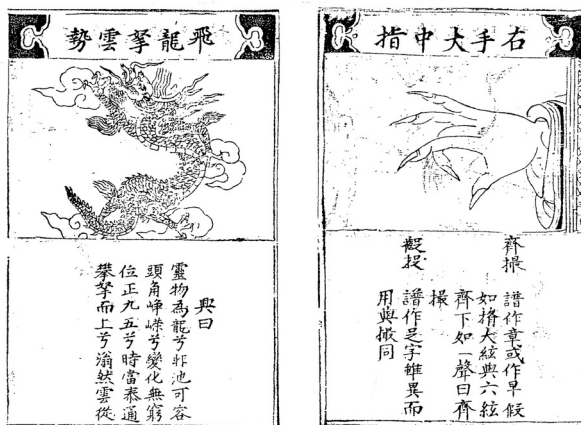 右手大中指
齊撮 譜作章或作早假
如大絃與六絃
齊下如一聲曰齊
撮
捉 譜作足字雖異而
用與撮同
飛龍拏雲勢
興曰
靈物為龍兮非池可容
頭角崢嶸兮變化無窮
位正九五兮時當泰通
攀拏而上兮滃然雲從